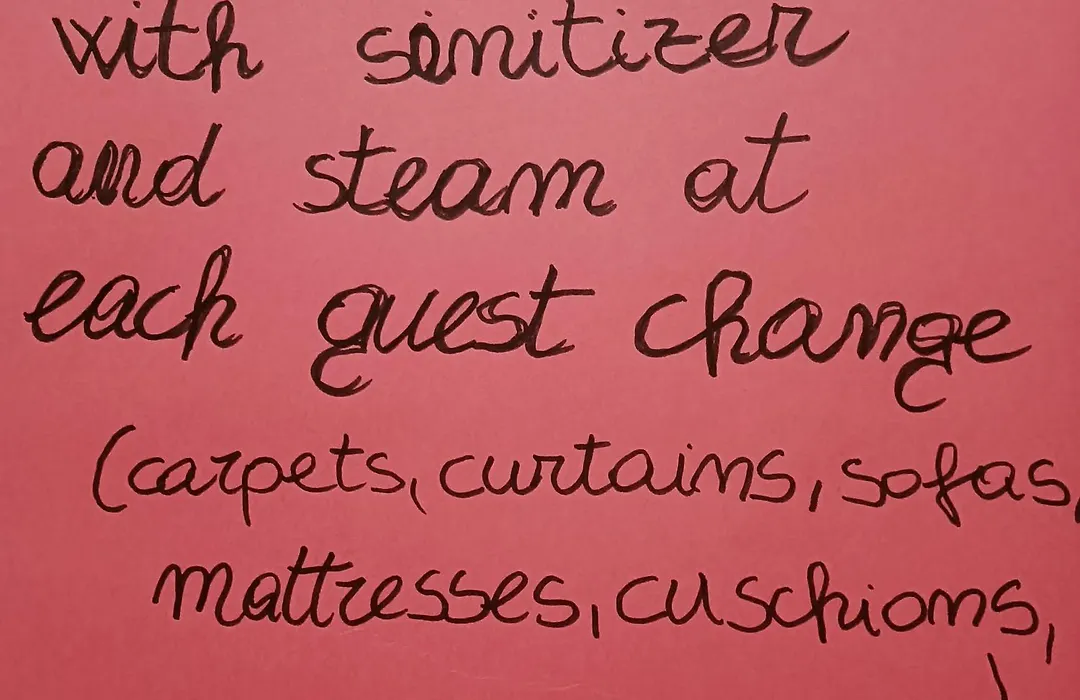 with sanitizer
and steam at
each guest change
(carpets, curtains, sofas,
mattresses, cuschions,
)